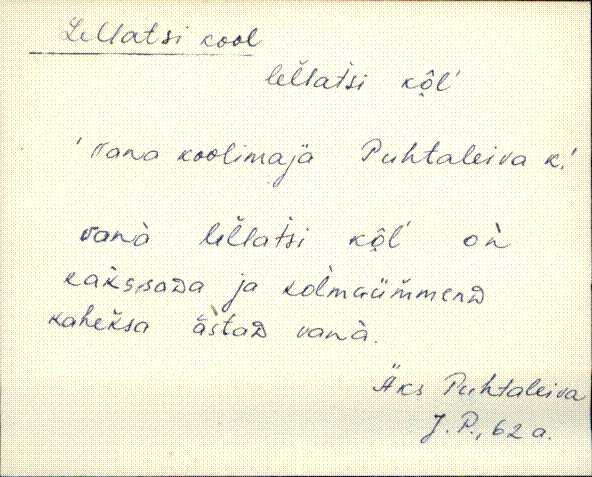 Lellatsi kool
lel̆lat̀si kõ̭l'
' vana koolimaja Puhtaleiva k.'
vanà lel̆lat̀si kõ̭l' oǹ
kak̆s̩sada ja kol̀maküm̆menD
kahek̆sa às̀taD vanà.
Äks Puhtaleiva
J. P., 62 a.